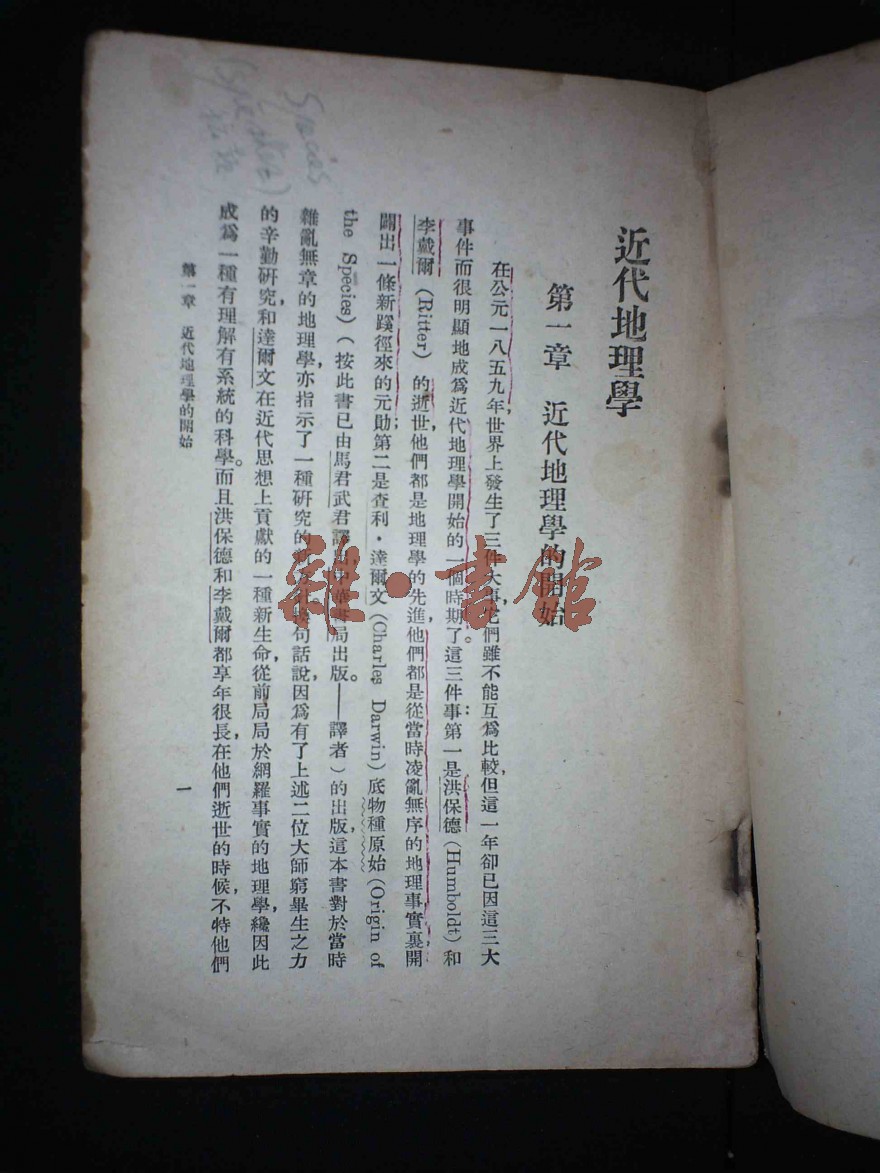 近代地理學
第一章　近代地理學的開始
在公元一八五九年，世界上發生了三件大事，它們雖不能互爲比較，但這一年卻已因這三大
事件而很明顯地成爲近代地理學開始的一個時期了。這三件事：第一是洪保德(Humboldt)和
李戴爾(Ritter)的逝世，他們都是地理學的先進，他們都是從當時凌亂無序的地理事實裏開
闢出一條新蹊徑來的元勛；第二是查利·達爾文(Charles Darwin)底物種原始(Origin of
the Species)(按此書已由馬君武君譯出，中華書局出版。——譯者)的出版，這本書對於當時
雜亂無章的地理學，亦指示了一種研究的句話說，因爲有了上述二位大師窮畢生之力
的辛勤研究，和達爾文在近代思想上貢獻的一種新生命，從前局局於網羅事實的地理學，纔因此
成爲一種有理解有系統的科學。而且洪保德和李戴爾都享年很長，在他們逝世的時候，不特他們
第一章　近代地理學的開始
一
Species
雜·書館